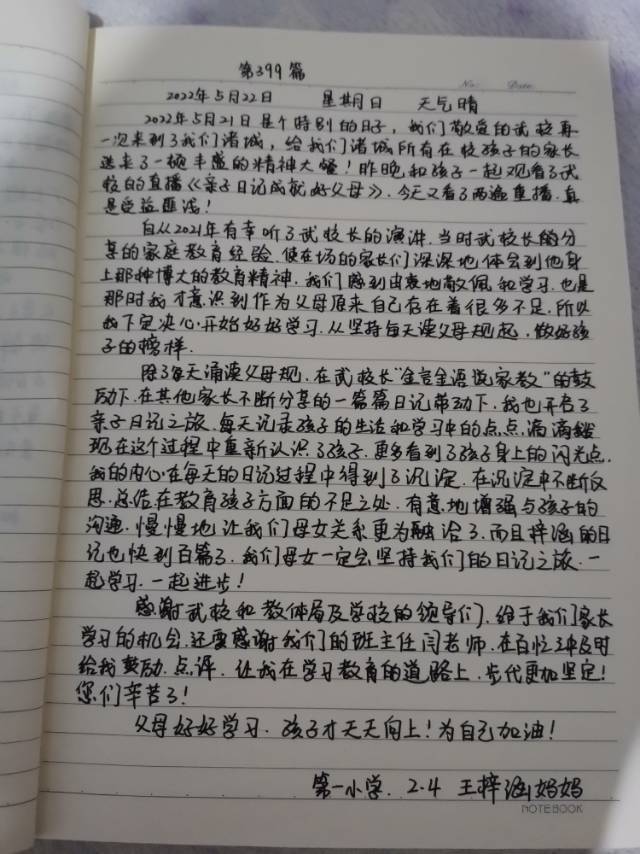 第399篇
No. Date
2022年5月22日 星期日 天气晴
2022年5月21日是个特别的日子,我们敬爱的武校再
一次来到了我们诸城,给我们诸城所有在校孩子的家长
送来了一顿丰盛的精神大餐!昨晚和孩子一起观看了武
校的直播《亲子日记成就好父母》,今天又看了两遍重播.真
是受益匪浅!
自从2021年有幸听了武校长的演讲.当时武校长的分
享的家庭教育经验.使在场的家长们深深地体会到他身
上那种博大的教育精神,我们感到由衷地敬佩和学习.也是
那时我才意识到作为父母原来自己存在着很多不足,所以
我下定决心.开始好好学习.从坚持每天读父母规起,做好孩
子的榜样.
除了每天诵读父母规.在武校长"金言金语说家教"的鼓
励下.在其他家长不断分享的一篇篇日记带动下,我也开启了
亲子日记之旅.每天记录孩子的生活和学习中的点点滴滴.
现在这个过程中重新认识了孩子.更多看到了孩子身上的闪光点.
我的内心在每天的日记过程中得到了沉淀.在沉淀中不断反
思.总结在教育孩子方面的不足之处.有意地增强与孩子的
沟通.慢慢地让我们母女关系更为融洽了.而且梓涵的日
记也快到百篇了.我们母女一定会坚持我们的日记之旅.一
起学习.一起进步!
感谢武校和教体局及学校的领导们,给于我们家长
学习的机会.还要感谢我们的班主任闫老师.在百忙之中及时
给我鼓励.点评.让我在学习教育的道路上.步伐更加坚定!
您们辛苦了!
父母好好学习.孩子才天天向上!为自己加油!
第一小学.2.4 王梓涵妈妈
NOTEBOOK